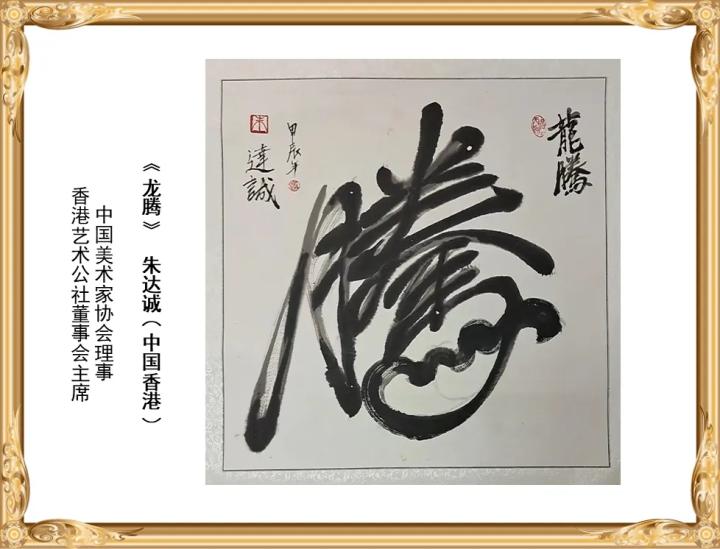 龍騰
騰
甲辰年
達誠
朱
《龙腾》 朱达诚（中国香港）
中国美术家协会理事
香港艺术公社董事会主席